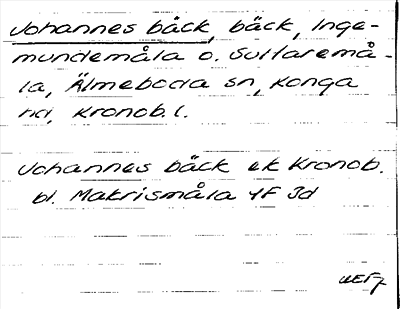 Johannes bäck, bäck, Inge-
mundemåla o. Suttaremå-
la, Älmeboda sn, Konga
hd, Kronob. l.
Johannes bäck ek Kronob.
bl. Makrismåla 4F 3d